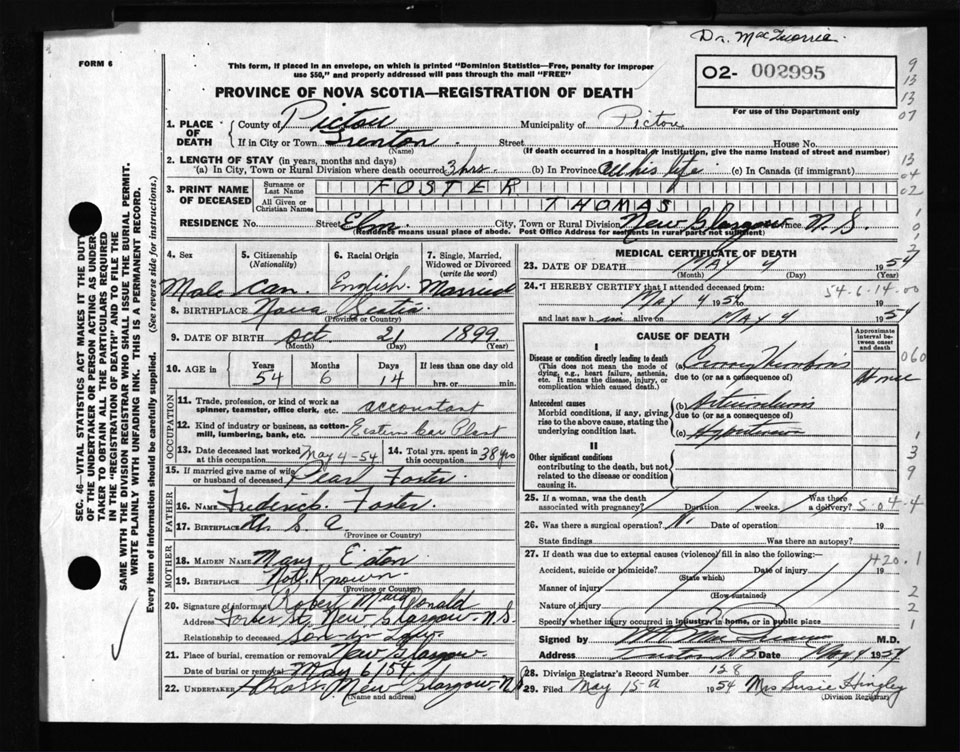 Dr. MacQuarrie.
FORM 6
This form, if placed in an envelope, on which is printed "Dominion Statistics—Free, penalty for improper
use $50," and properly addressed will pass through the mail "FREE"
02- 002995
For use of the Department only
PROVINCE OF NOVA SCOTIA—REGISTRATION OF DEATH
1. PLACE OF DEATH County of Pictou Municipality of Pictou
If in City or Town Trenton Street House No.
(Name) (If death occurred in a hospital or institution, give the name instead of street and number)
2. LENGTH OF STAY (in years, months and days)
(a) In City, Town or Rural Division where death occurred 3 hrs (b) In Province all his life (c) In Canada (if immigrant)
3. PRINT NAME OF DECEASED Surname or Last Name FOSTER
All Given or Christian Names THOMAS
RESIDENCE No. Street Elm City, Town or Rural Division New Glasgow Province N. S.
(Residence means usual place of abode. Post Office Address for residents in rural parts not sufficient)
4. Sex 5. Citizenship (Nationality) 6. Racial Origin 7. Single, Married, Widowed or Divorced (write the word)
Male Can. English. Married
8. BIRTHPLACE Nova Scotia
(Province or Country)
9. DATE OF BIRTH Oct. 21 1899
(Month) (Day) (Year)
10. AGE in Years Months Days If less than one day old
54 6 14 hrs. or min.
OCCUPATION
11. Trade, profession, or kind of work as
spinner, teamster, office clerk, etc. accountant
12. Kind of industry or business, as cotton-
mill, lumbering, bank, etc. Eastern Car Plant
13. Date deceased last worked at this occupation May 4-54 14. Total yrs. spent in this occupation 38 yrs
15. If married give name of wife
or husband of deceased Pearl Foster
FATHER
16. Name Frederick Foster.
17. Birthplace U. S. A.
(Province or Country)
MOTHER
18. Maiden Name Mary
19. Birthplace Not Known.
(Province or Country)
20. Signature of informant Robert MacDonald
Address Forbes St. New Glasgow - N.S.
Relationship to deceased Son-in-Law.
21. Place of burial, cremation or removal New Glasgow.
Date of burial or removal May 6/54
22. Undertaker New Glasgow N.S.
(Name and address)
MEDICAL CERTIFICATE OF DEATH
23. DATE OF DEATH May 4 1954
(Month) (Day) (Year)
24. I HEREBY CERTIFY that I attended deceased from
May 4 1954 54-6-14-00
and last saw him alive on May 4 1954
CAUSE OF DEATH
Approximate interval between onset and death
I
Disease or condition directly leading to death
(This does not mean the mode of
dying, e.g., heart failure, asthenia,
etc. It means the disease, injury, or
complication which caused death.)
(a) Coronary Thrombosis
due to (or as a consequence of) At once
Antecedent causes
Morbid conditions, if any, giving
rise to the above cause, stating the
underlying condition last.
(b)
due to (or as a consequence of)
(c) Hypertension
II
Other significant conditions
contributing to the death, but not
related to the disease or condition
causing it.
25. If a woman, was the death
associated with pregnancy? Duration weeks. Was there a delivery? 5-04-4
26. Was there a surgical operation? No Date of operation 19
State findings Was there an autopsy?
27. If death was due to external causes (violence) fill in also the following:— 420.1
Accident, suicide or homicide? Date of injury 19
(State which)
Manner of injury
(How sustained)
Nature of injury
Specify whether injury occurred in industry, in home, or in public place
Signed by M.D.
Address Trenton N S Date May 4 1954
28. Division Registrar's Record Number 128
29. Filed May 15th 1954 Mrs Susie Hingley
(Division Registrar)
SEC. 46—VITAL STATISTICS ACT MAKES IT THE DUTY
OF THE UNDERTAKER OR PERSON ACTING AS UNDER-
TAKER TO OBTAIN ALL THE PARTICULARS REQUIRED
IN THE "REGISTRATION OF DEATH" AND TO FILE THE
SAME WITH THE DIVISION REGISTRAR WHO SHALL ISSUE THE BURIAL PERMIT.
WRITE PLAINLY WITH UNFADING INK. THIS IS A PERMANENT RECORD.
Every item of information should be carefully supplied. (See reverse side for instructions.)
9
13
13
07
13
04
02
060
1
3
9
1
2
2
1